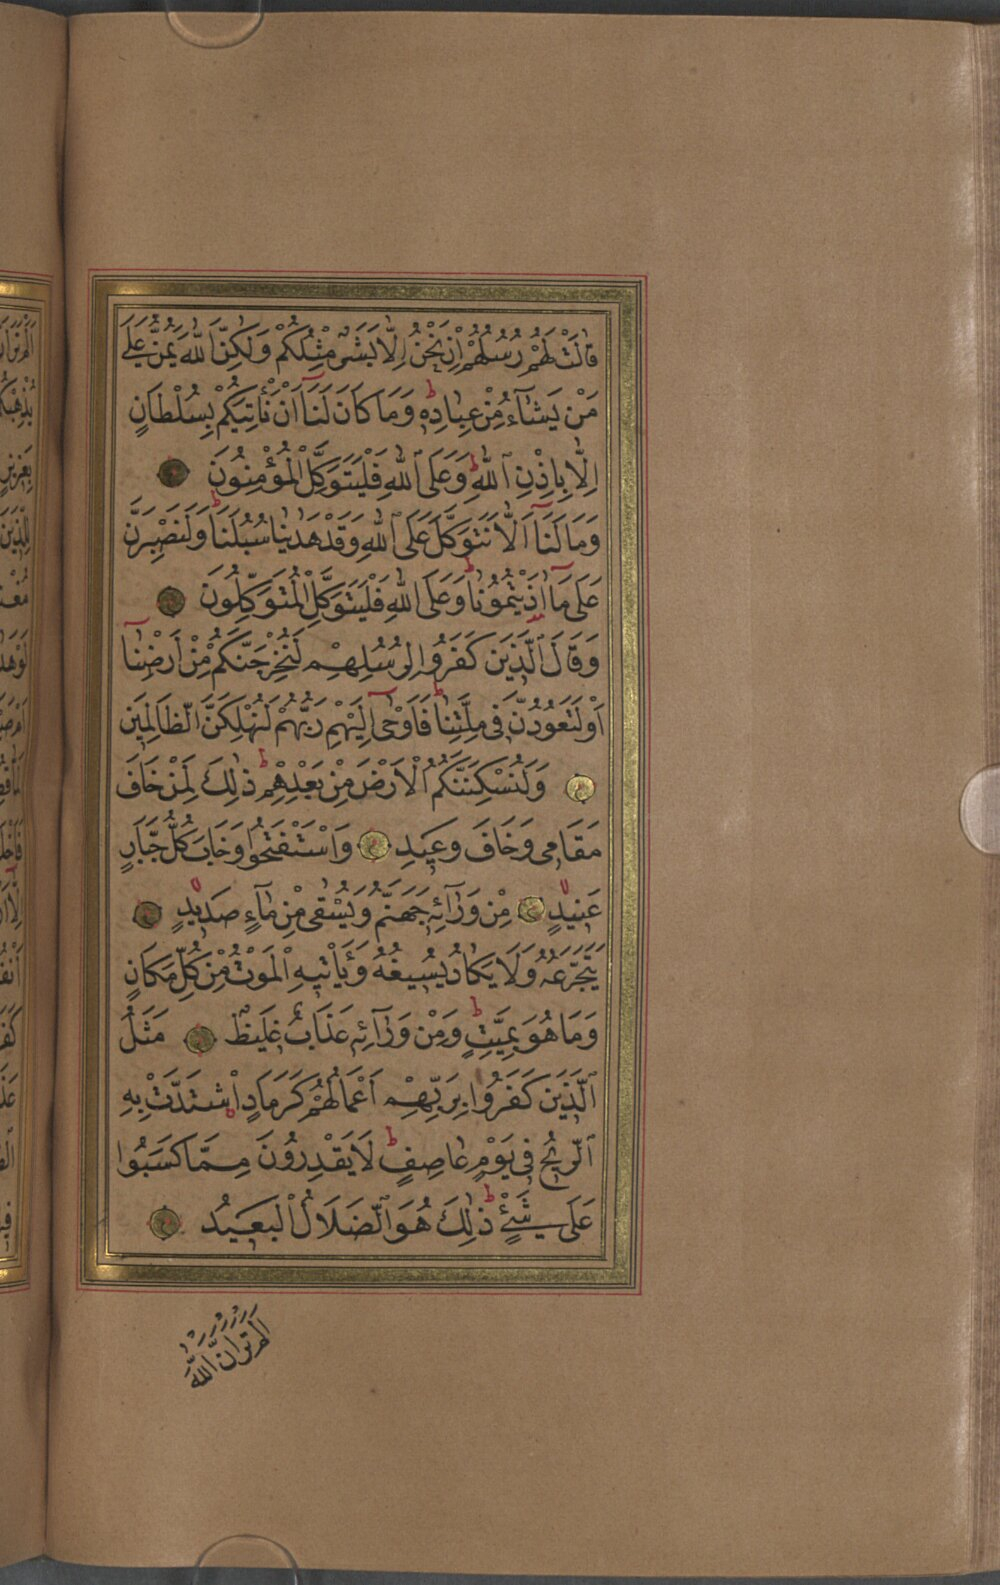 قَالَتْ لَهُمْ رُسُلُهُمْ اِنْ نَحْنُ اِلَّا بَشَرٌ مِثْلُكُمْ وَلٰكِنَّ اللّٰهَ يَمُنُّ عَلٰى
مَنْ يَشَٓاءُ مِنْ عِبَادِهٖ ط وَمَا كَانَ لَنَٓا اَنْ نَأْتِيَكُمْ بِسُلْطَانٍ
اِلَّا بِاِذْنِ اللّٰهِ ط وَعَلَى اللّٰهِ فَلْيَتَوَكَّلِ الْمُؤْمِنُونَ
وَمَا لَنَٓا اَلَّا نَتَوَكَّلَ عَلَى اللّٰهِ وَقَدْ هَدٰينَا سُبُلَنَا ط وَلَنَصْبِرَنَّ
عَلٰى مَٓا اٰذَيْتُمُونَا ط وَعَلَى اللّٰهِ فَلْيَتَوَكَّلِ الْمُتَوَكِّلُونَ
وَقَالَ الَّذِينَ كَفَرُوا لِرُسُلِهِمْ لَنُخْرِجَنَّكُمْ مِنْ اَرْضِنَٓا
اَوْ لَتَعُودُنَّ فِى مِلَّتِنَا ط فَاَوْحٰٓى اِلَيْهِمْ رَبُّهُمْ لَنُهْلِكَنَّ الظَّالِمِينَ
وَلَنُسْكِنَنَّكُمُ الْاَرْضَ مِنْ بَعْدِهِمْ ط ذٰلِكَ لِمَنْ خَافَ
مَقَامِى وَخَافَ وَعِيدِ وَاسْتَفْتَحُوا وَخَابَ كُلُّ جَبَّارٍ
عَنِيدٍ مِنْ وَرَٓائِهٖ جَهَنَّمُ وَيُسْقٰى مِنْ مَٓاءٍ صَدِيدٍ
يَتَجَرَّعُهُ وَلَا يَكَادُ يُسِيغُهُ وَيَأْتِيهِ الْمَوْتُ مِنْ كُلِّ مَكَانٍ
وَمَا هُوَ بِمَيِّتٍ ط وَمِنْ وَرَٓائِهٖ عَذَابٌ غَلِيظٌ مَثَلُ
الَّذِينَ كَفَرُوا بِرَبِّهِمْ اَعْمَالُهُمْ كَرَمَادٍ اشْتَدَّتْ بِهِ
الرِّيحُ فِى يَوْمٍ عَاصِفٍ ط لَا يَقْدِرُونَ مِمَّا كَسَبُوا
عَلٰى شَىْءٍ ط ذٰلِكَ هُوَ الضَّلَالُ الْبَعِيدُ
اَلَمْ تَرَ اَنَّ اللّٰهَ